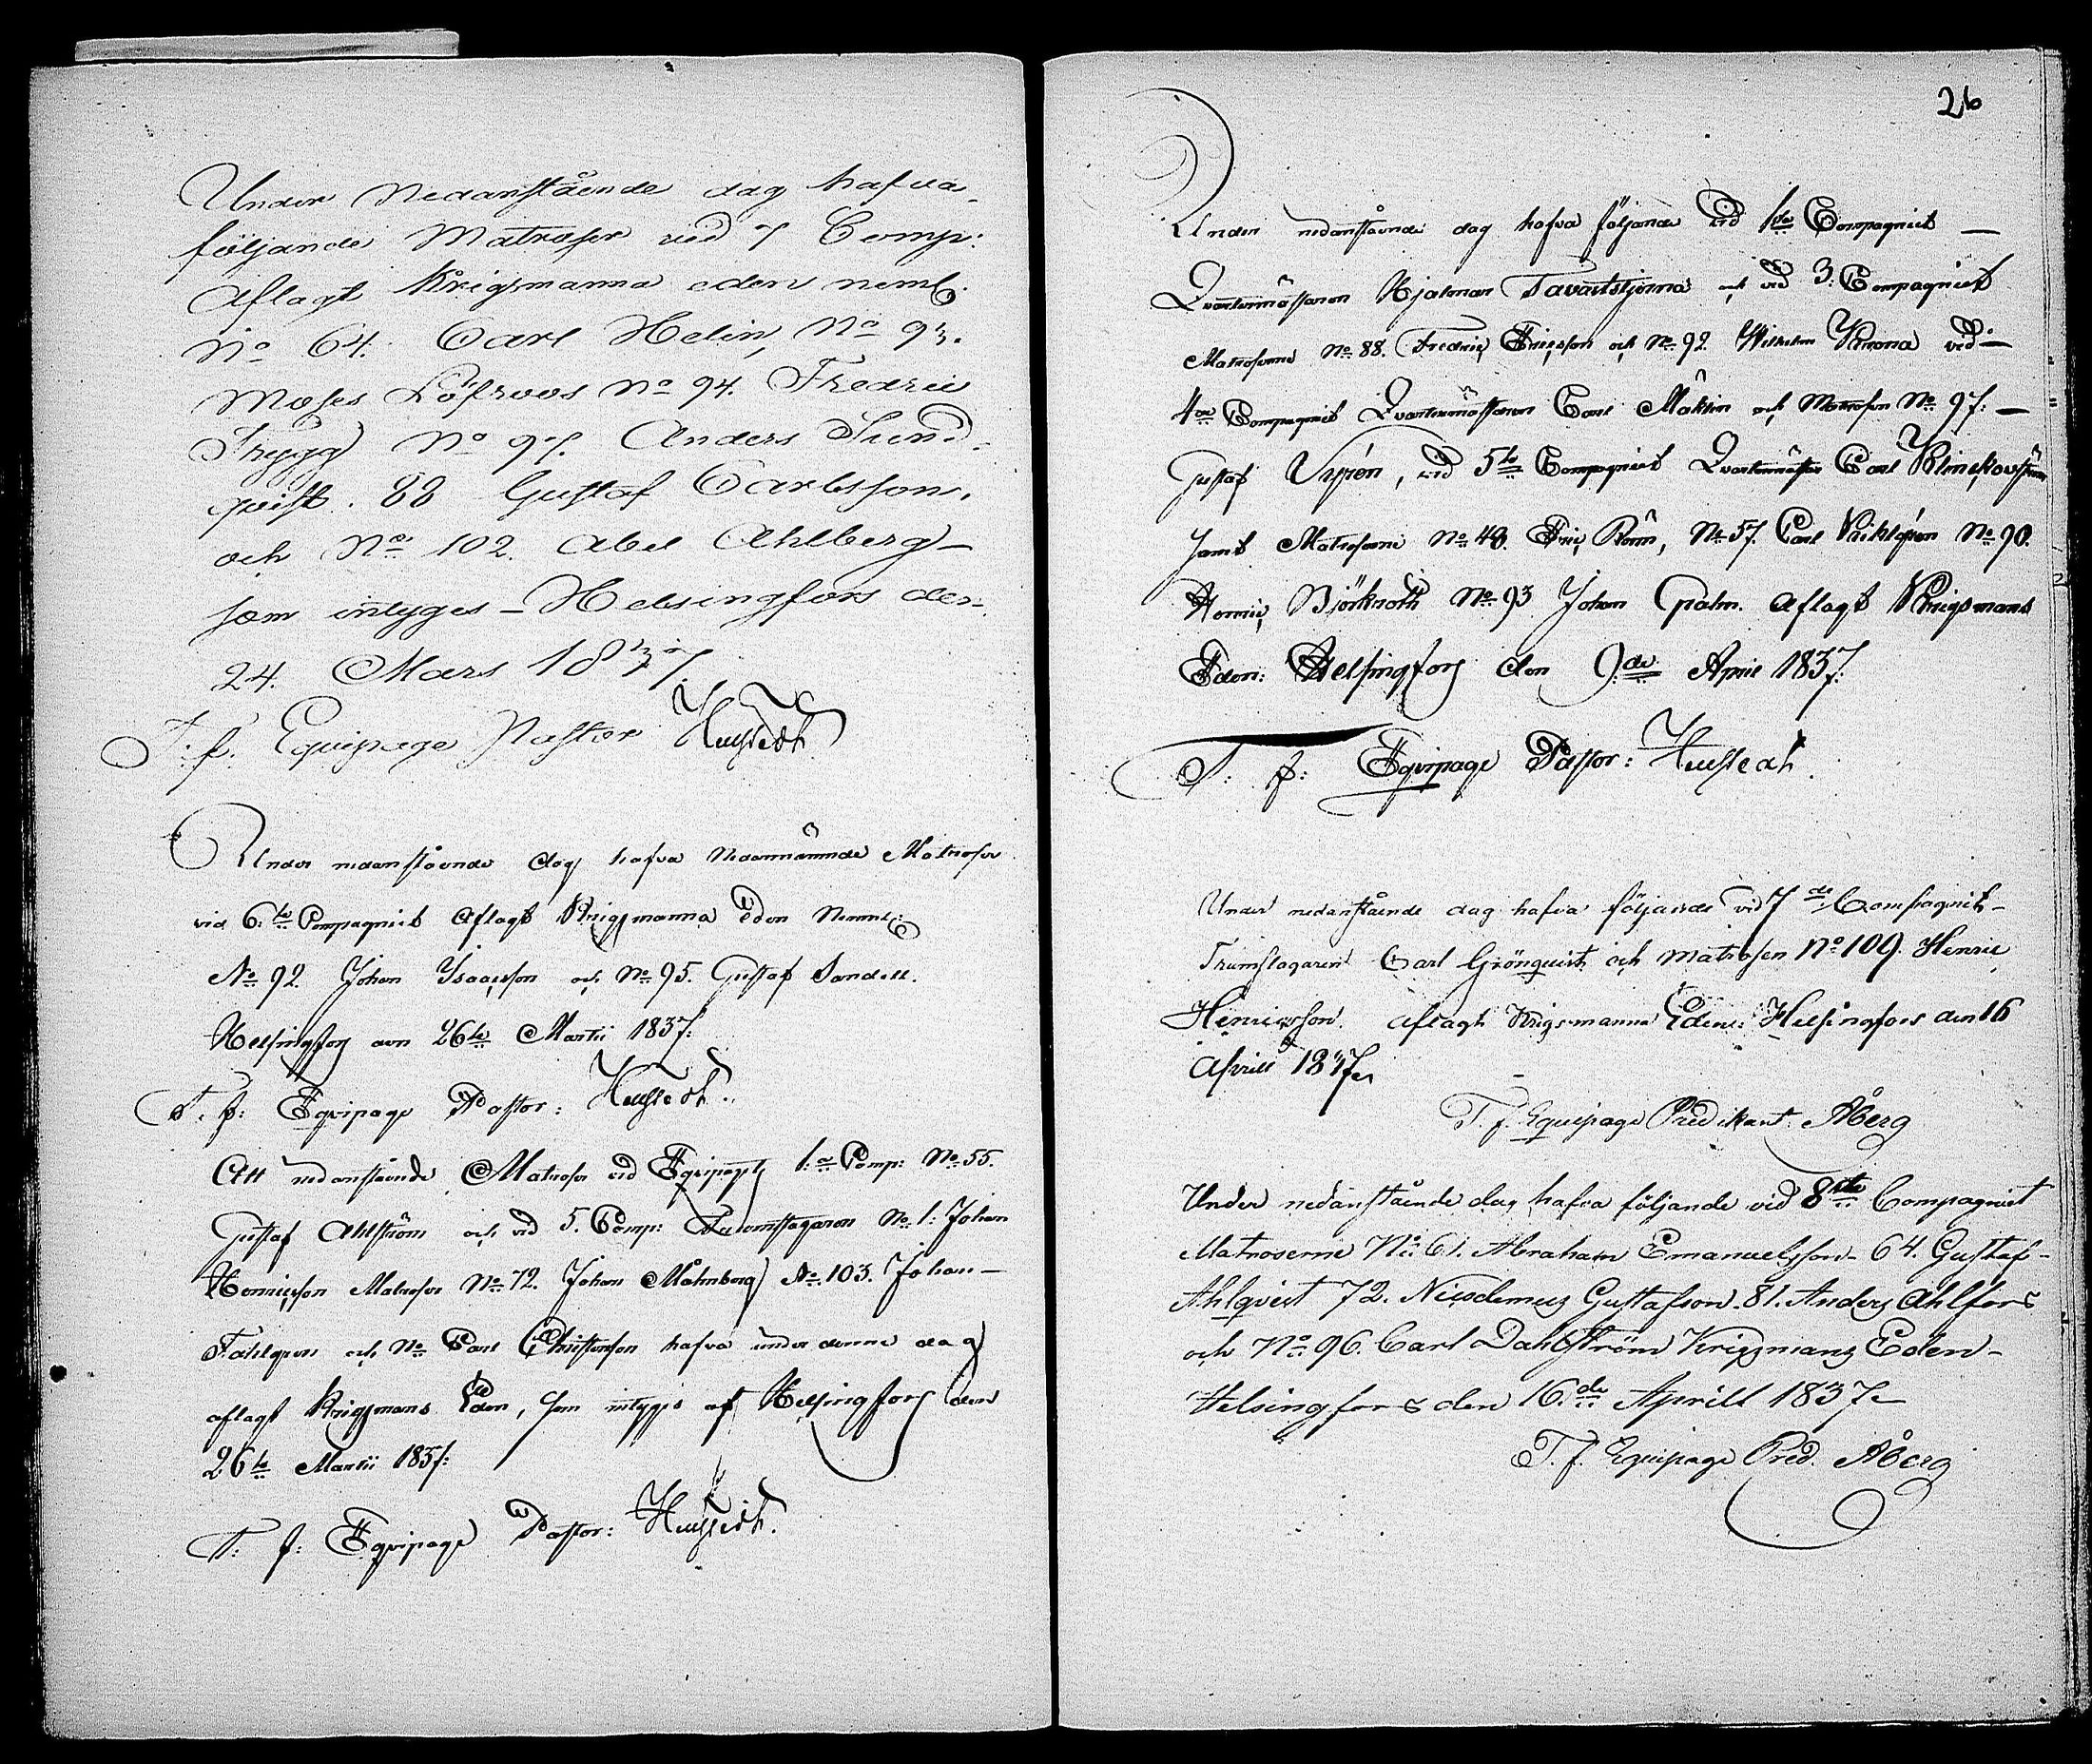 Under Nedanstående dag hafva
följande Matroser vid 7 Comp:
aflagt Krigsmanna eden neml.
No 64. Carl Helin, No 93.
Moses Löfroos No 94. Fredric
Trygg No 97. Anders Sund-
qvist. 88 Gustaf Carlsson.
och No 102. Abel Ahlberg—
som intyges – Helsingfors den
24. Mars 1837.
T. f. Equipage Pastor
Under nedanstående dag hafva Nedannämnde Matroser
vid 6:te Compagniet aflagt Krigsmanna Eden Neml:
No 92. Johan Isaacsson och No 95. Gustaf Sandell.
Helsingfors den 26te Martii 1837:
T. f: Eqvipage Pastor:
Att nedanstående Matroser vid Eqvipagets 1:a Comp: No 55.
Gustaf Ahlström och vid 5. Comp: Trumslagaren No 1: Johan
Henricsson Matroser No 72. Johan Malmberg No 103. Johan—
Fahlgren och No Carl Christersson hafva under denne dag
aflagt Krigsmans Eden, som intygas af Helsingfors den
26te Martii 1837:
T: f: Eqvipage Pastor:
26
Under nedanstående dag hafva följande vid 1:sta Compagniet —
Qvartermästaren Hjalmar Tavaststjerna och vid 3: Compagniet
Matroserne No 88. Fredric Ericsson och No 92. Wilhelm Krona vid—
4de Compagniet Qvartermästaren Carl och Matrosen No 97:—
Gustaf, vid 5te Compagniet Qvartermästar Carl
samt Matroserne No 48. Eric, No 57. Carl No 90.
Henric Björkroth No 93 Johan Palm. aflagt Krigsmans
Eden: Helsingfors den 9:de April 1837.
T: f: Eqvipage Pastor:
Under nedanstående dag hafva följande vid 7de Compagniet—
Trumslagaren Carl Grönquist och matrosen No 109. Henric
Henricsson. aflagt Krigsmanna Eden: Helsingfors den 16
Aprill 1837.
T. f. Equipage Predikant. Åberg
Under nedanstående dag hafva följande vid 8de Compagniet
Matroserne No: 61. Abraham Emanuelsson– 64. Gustaf–
Ahlqvist 72. Nicodemus Gustafson. 81. Anders Ahlfors
och No: 96. Carl Dahlström Krigsmans Eden–
Helsingfors den 16.de Aprill 1837–
T. f. Equipage Pred. Åberg